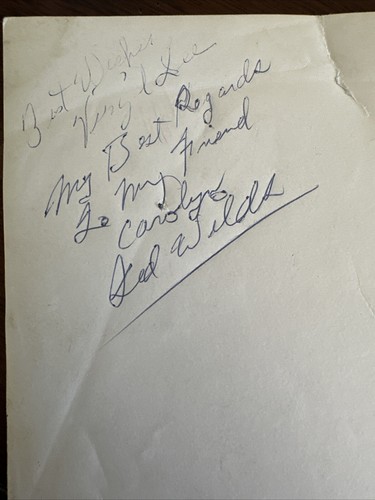 Best Wishes
Virgil Lee
My Best Regards
To My Friend
Carolyn
Ted Wilds